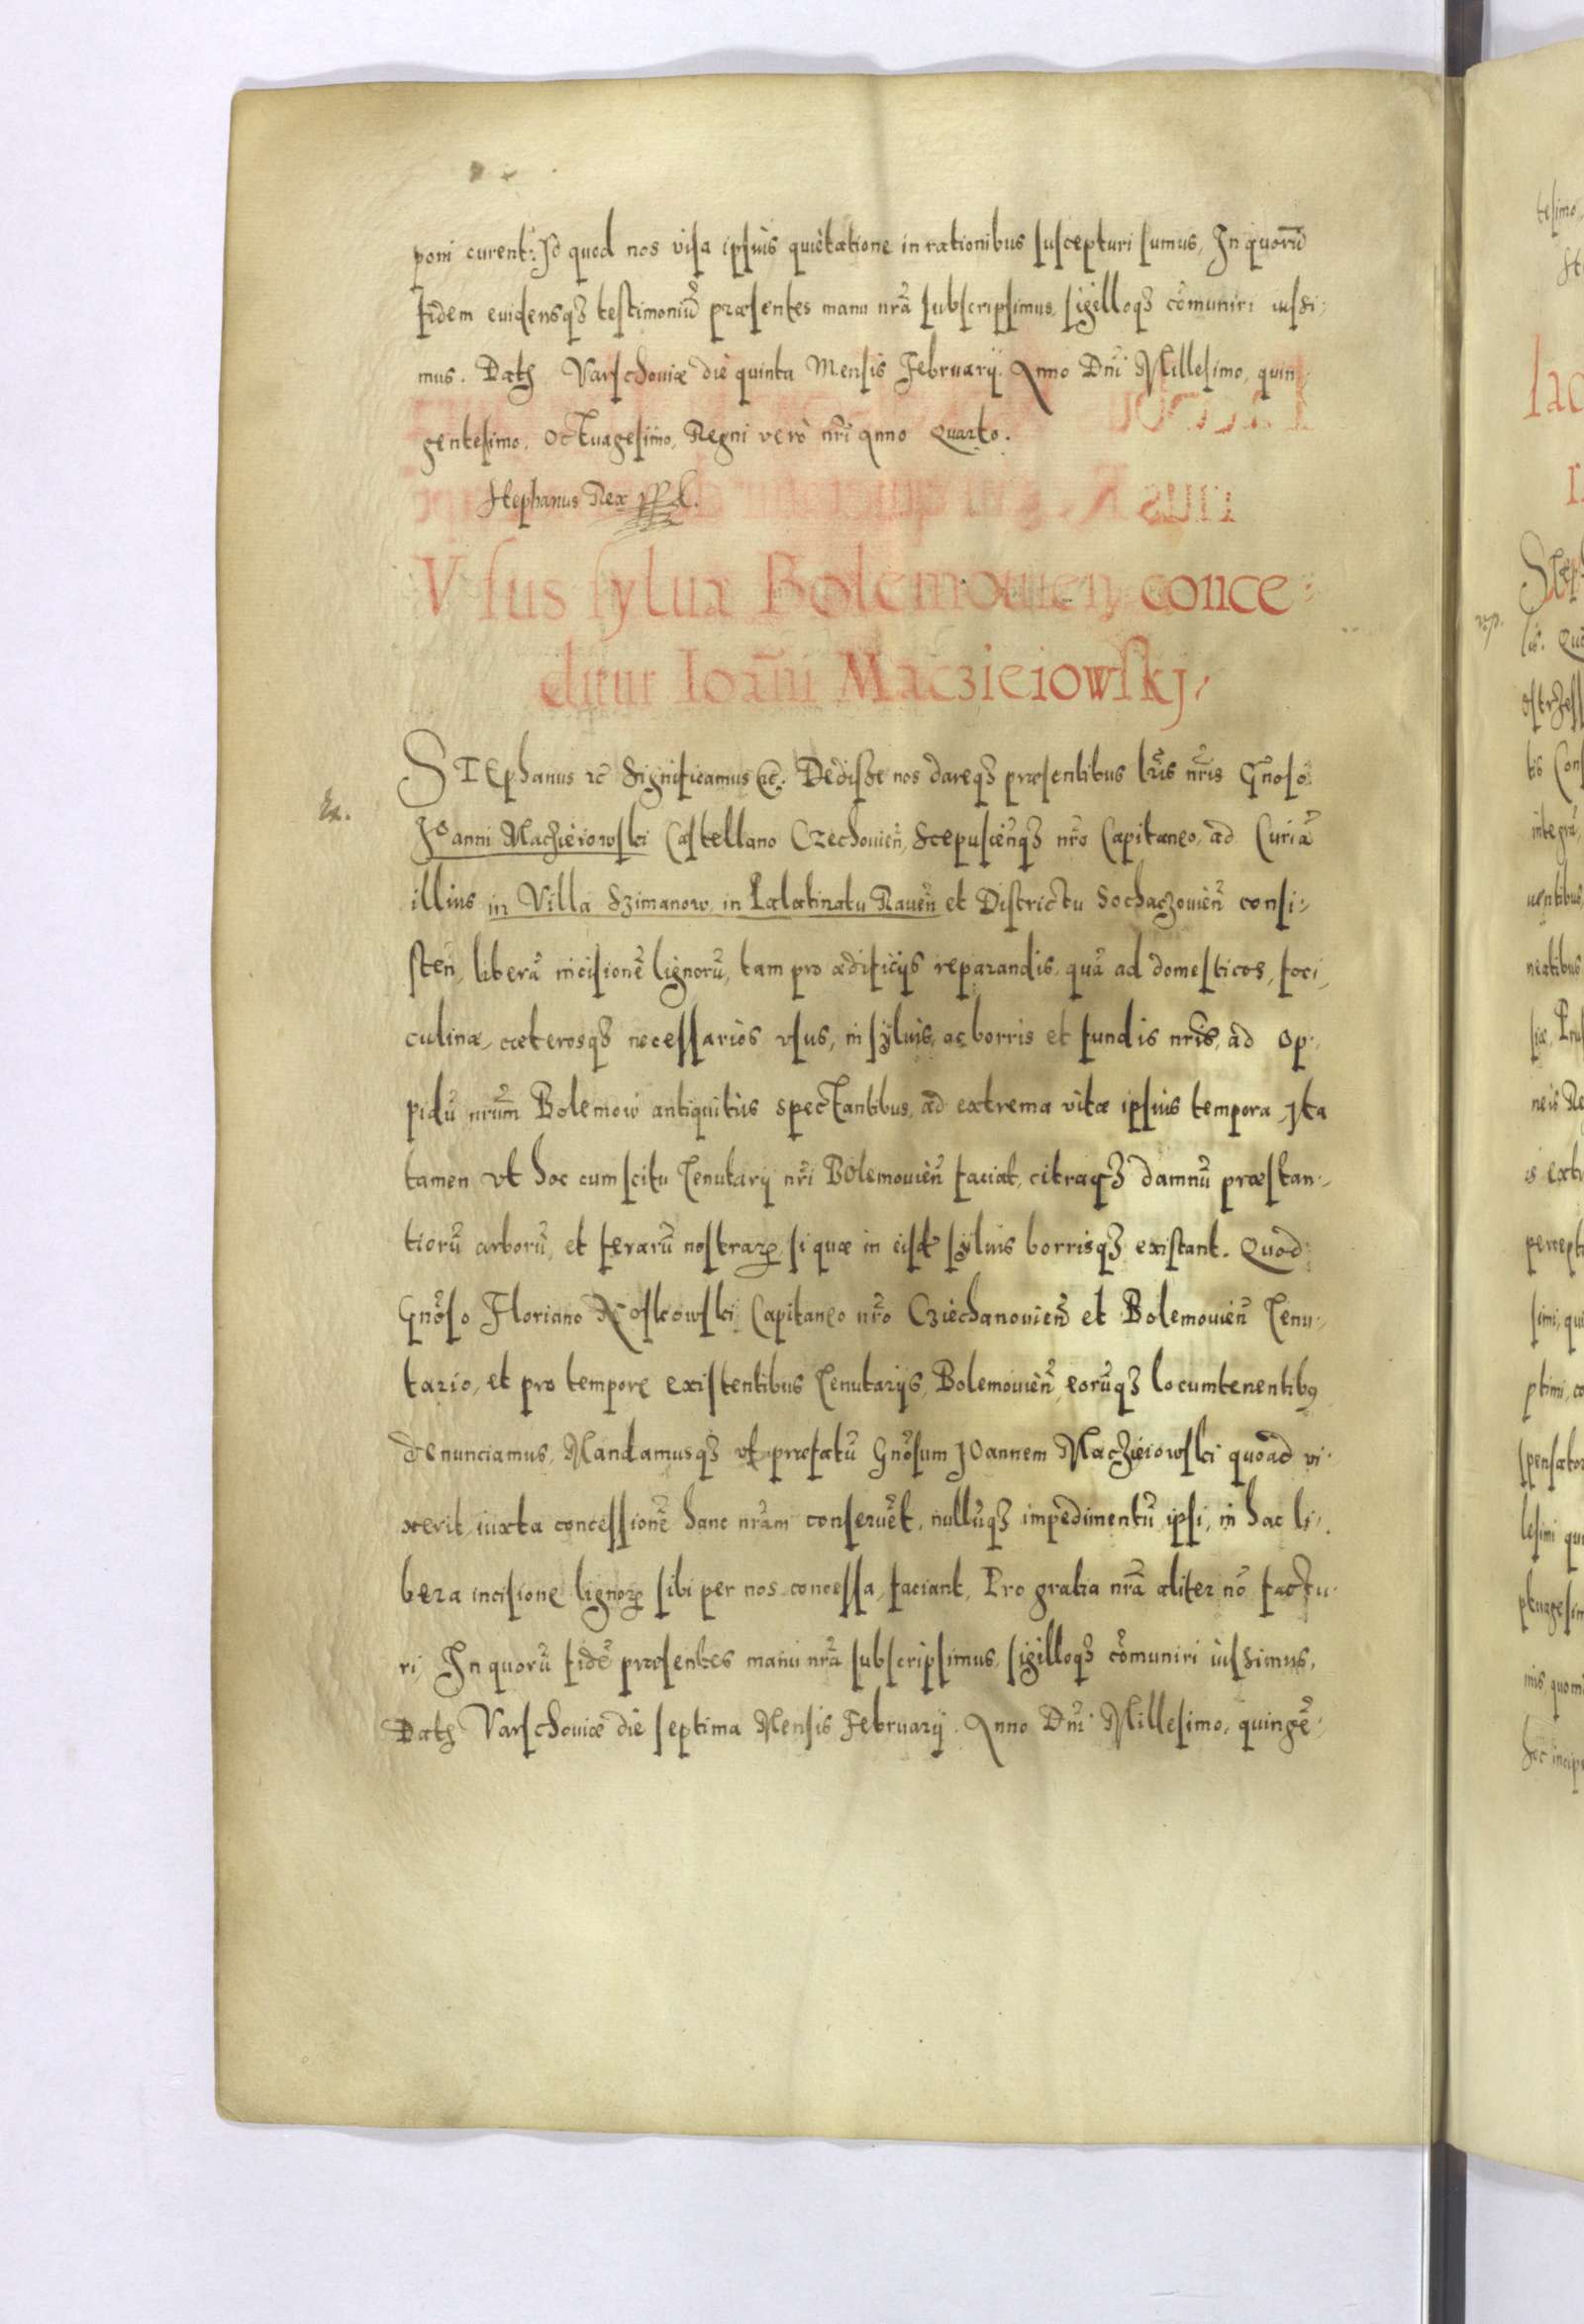 poni curent: Id quod nos visa ipsius quietatione in rationibus suscepturi sumus, In quorũ
fidem euidensqȝ testimoniũ præsentes manu nrã subscripsimus, sigilloqȝ cõmuniri iussi-
mus. Datȝ Varschouiæ die quinta Mensis Februarij. Anno Dnĩ Millesimo, quin-
gentesimo, Octuagesimo, Regni verò nrĩ anno Quarto.
Stephanus Rex
Vsus syluæ Bolemouien conce-
ditur Ioañi Maczieiowskj,
STEphanus ic̃ Significamus etc̃. Dedisse nos dareqȝ præsentibus lrĩs nrĩs Gñoso
Ex.
Ioanni Macȝieiowski Castellano Czechouieñ, Scepusieñqȝ nrõ Capitaneo, ad Curiã
illius in Villa Szimanow, in Palatinatu Raueñ et Districtu Sochaczouieñ consi-
steñ, liberã incisionẽ lignorũ, tam pro ædificijs reparandis, quã ad domesticos, foci,
culinæ, cæterosqȝ necessarios vsus, in syluis, ac borris et fundis nrĩs, ad Op-
pidũ nrũm Bolemow antiquitùs spectantibus, ad extrema vitæ ipsius tempora, Ita
tamen vt hoc cum scitu Tenutarij nrĩ Bolemouieñ faciat, citraqȝ damnũ præstan-
tiorũ arborũ, et ferarũ nostraꝝ, si quæ in eisd syluis borrisqȝ existant. Quod
Gñoso Floriano Noskowski Capitaneo nrõ Cziechanouieñ et Bolemouieñ Tenu-
tario, et pro tempore existentibus Tenutarijs, Bolemouieñ, eorũqȝ locumtenentibꝰ
denunciamus, Mandamusqȝ vt præfatũ Gñosum Ioannem Macȝieiowski quoad vi-
xerit, iuxta concessionẽ hanc nrãm conseruẽt, nullũqȝ impedimentũ ipsi, in hac li-
bera incisione lignoꝝ sibi per nos concessa, faciant, Pro gratia nrã aliter nõ factu-
ri, In quorũ fidẽ præsentes manu nrã subscripsimus, sigilloqȝ cõmuniri iussimus,
Datȝ Varschouiæ die septima Mensis Februarij. Anno Dnĩ Millesimo, quingẽ-